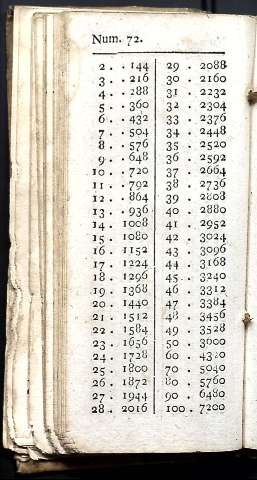 Num. 72.
2 . . 144 29 . 2088
3 . . 216 30 . 2160
4 . . 288 31 . 2232
5 . . 360 32 . 2304
6 . . 432 33 . 2376
7 . . 504 34 . 2448
8 . . 576 35 . 2520
9 . . 648 36 . 2592
10 . . 720 37 . 2664
11 . . 792 38 . 2736
12 . . 864 39 . 2808
13 . . 936 40 . 2880
14 . 1008 41 . 2952
15 . 1080 42 . 3024
16 . 1152 43 . 3096
17 . 1224 44 . 3168
18 . 1296 45 . 3240
19 . 1368 46 . 3312
20 . 1440 47 . 3384
21 . 1512 48 . 3456
22 . 1584 49 . 3528
23 . 1656 50 . 3600
24 . 1728 60 . 4320
25 . 1800 70 . 5040
26 . 1872 80 . 5760
27 . 1944 90 . 6480
28 . 2016 100 . 7200